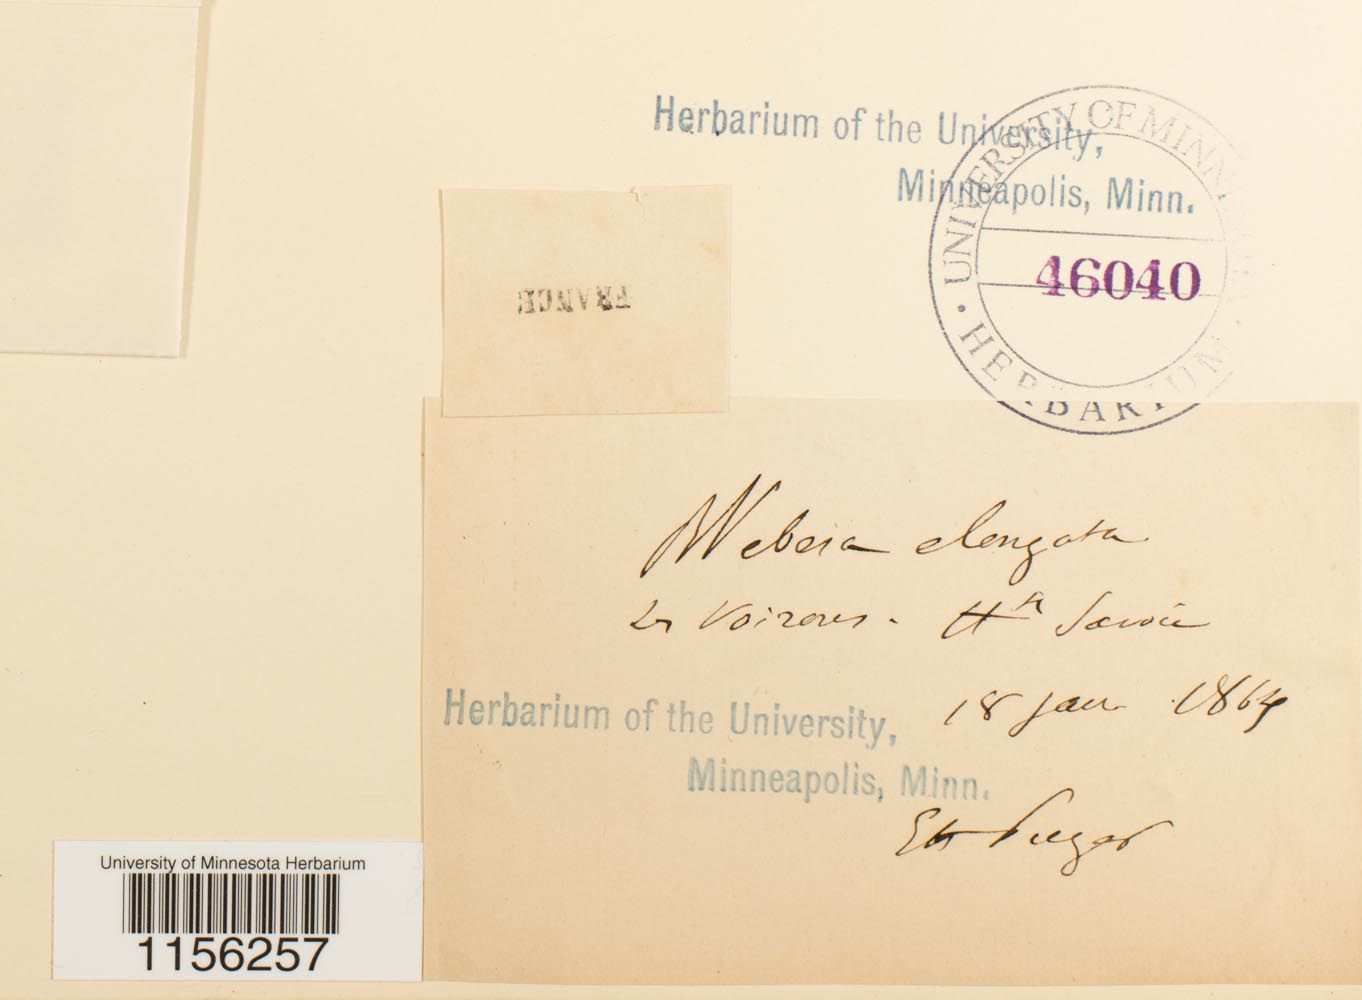 Herbarium of the University,
Minneapolis, Minn.
UNIVERSITY OF MINNESOTA
46040
HERBARIUM
FRANCE
Webera elongata
Les Voirons. Hte Savoie
18 janv 1864
Herbarium of the University,
Minneapolis, Minn.
Puget
University of Minnesota Herbarium
1156257